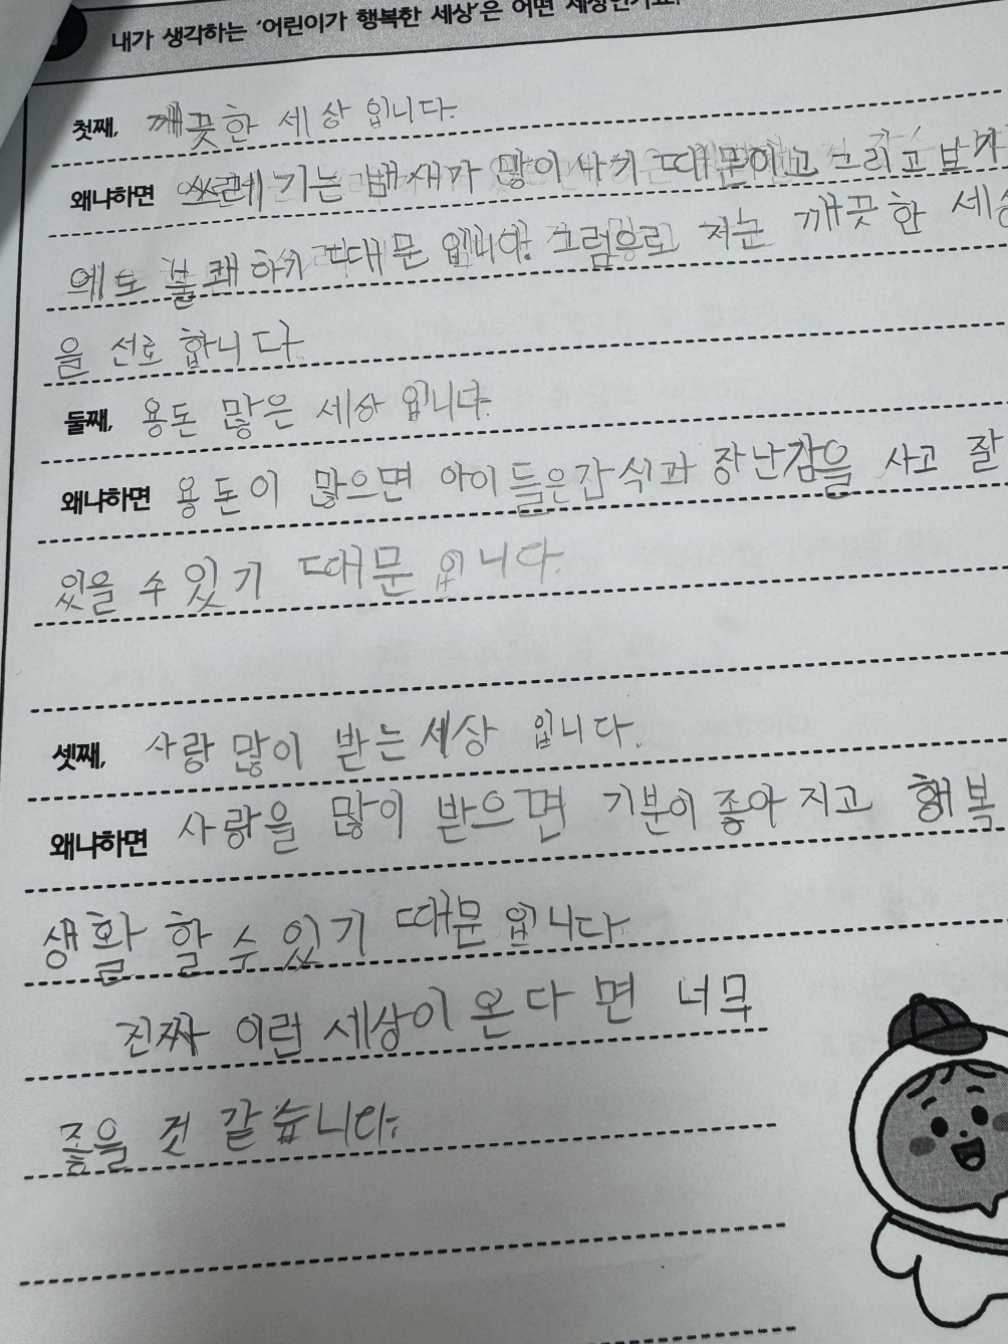 내가 생각하는 '어린이가 행복한 세상'은 어떤 세상인가요?
첫째, 깨끗한 세상 입니다.
왜냐하면 쓰레기는 냄새가 많이 나기 때문이고 그리고 보기
에도 불쾌 하기 때문 입니다. 그럼으로 저는 깨끗한 세상
을 선호 합니다.
둘째, 용돈 많은 세상 입니다.
왜냐하면 용돈이 많으면 아이들은 간식과 장난감을 사고 잘
있을 수 있기 때문 입니다.
셋째, 사랑 많이 받는 세상 입니다.
왜냐하면 사랑을 많이 받으면 기분이 좋아지고 행복
생활 할 수 있기 때문 입니다.
진짜 이런 세상이 온다면 너무
좋을 것 같습니다.